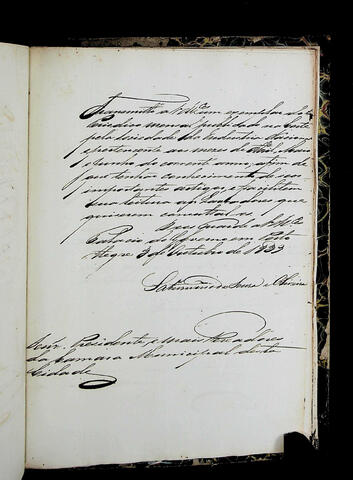 Transmitto a VMces um exemplar do
Periodico mensal publicado na Corte
pela Sociedade da Industria Nacional
e pertencente ao mez de Abril, Maio
e Junho do corrente anno, afim de
que tenhão conhecimento de seus
importantes artigos e facilitem
sua leitura aos Lavradores que
quizerem consultal-os
Deos Guarde a VMces
Palacio do Governo em Porto
Alegre 3 de Outubro de 1853
de Souza e Oliveira
Snrs. Presidente, e mais Vereadores
da Camara Municipal desta
Cidade